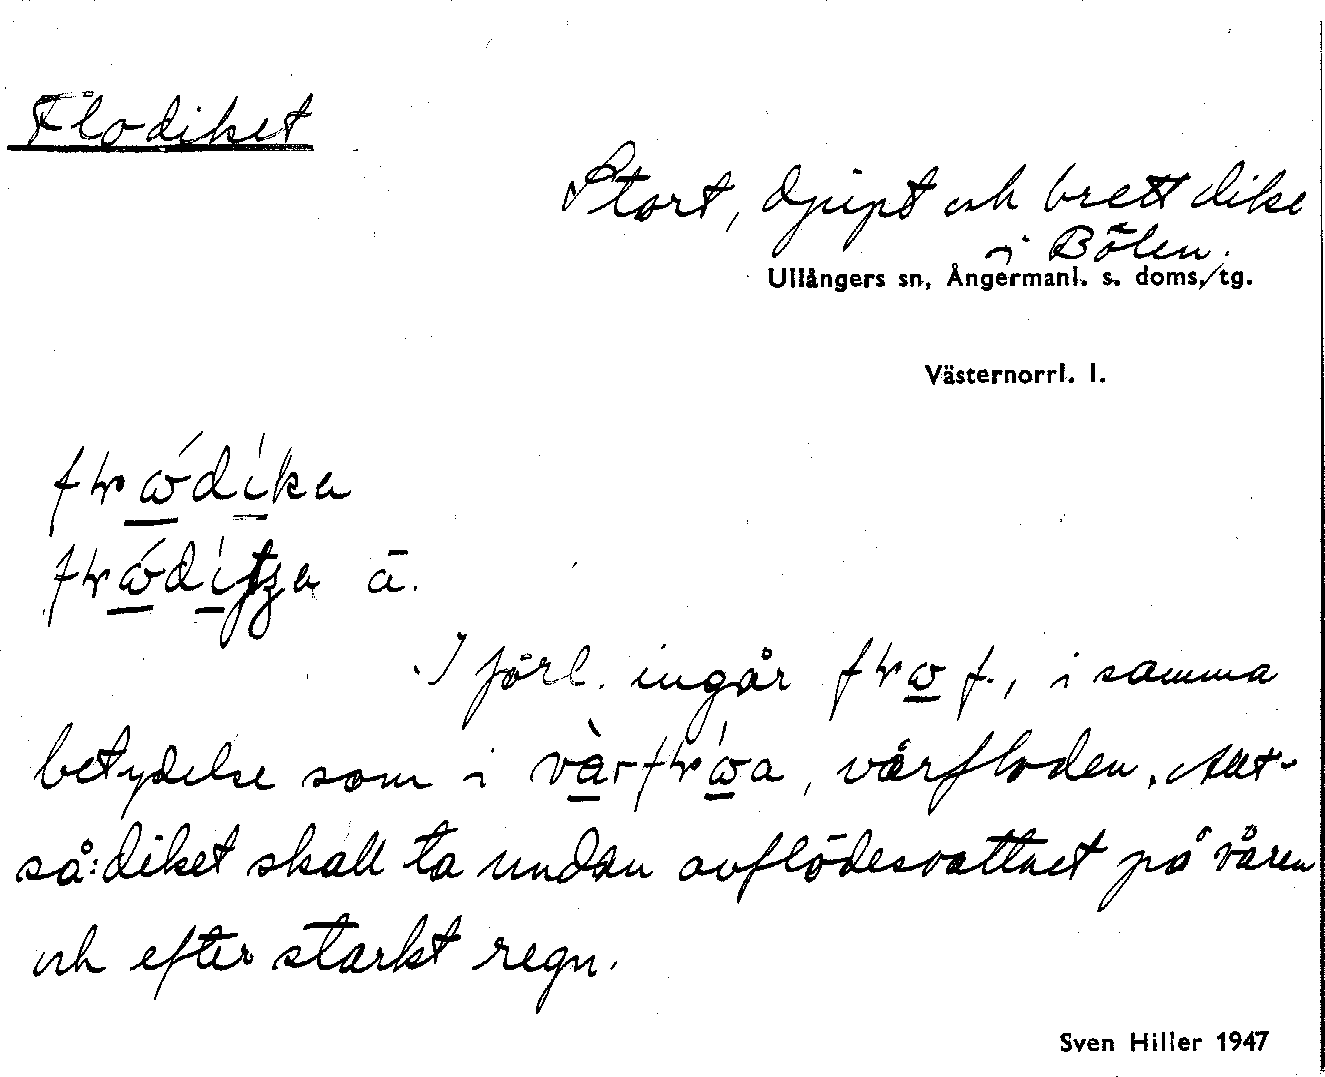 Flodiket
Stort, djupt och brett dike
i Bölen.
Ullångers sn, Ångermanl. s. doms./tg.
Västernorrl. l.
ā.
I förl. ingår f., i samma
betydelse som i vårfloden. Allt-
så: diket skall ta undan avflödesvattnet på våren
och efter starkt regn.
Sven Hiller 1947